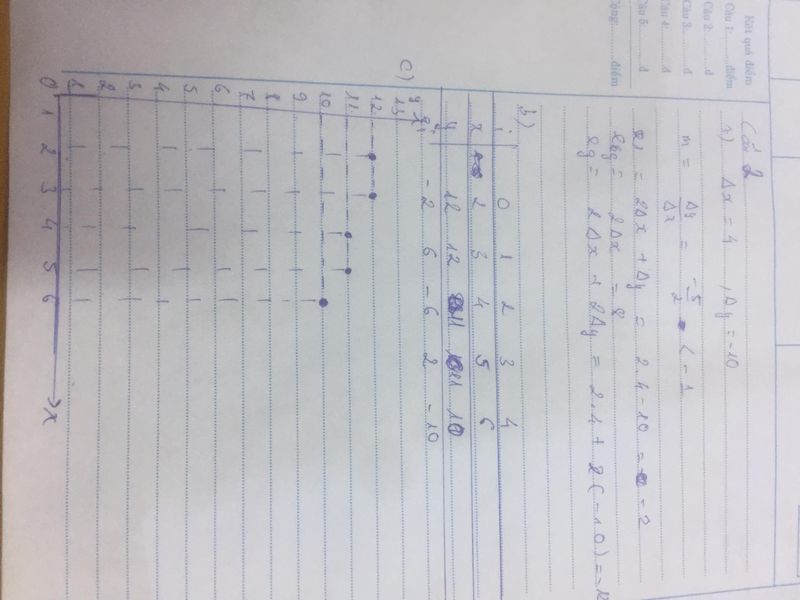 Kết quả điểm
Câu 1: ........ điểm
Câu 2: ........ đ
Câu 3: ........ đ
Câu 4: ........ đ
Câu 5: ........ đ
Cộng: ........ điểm
Câu 2
a) Δx = 4 , Δy = -10
m = Δy/Δx = -5/2 < -1
= 2Δx + Δy = 2.4 - 10 = -2
= 2Δx = 8
= 2Δx + 2Δy = 2.4 + 2(-10) =
b)
i 0 1 2 3 4
x 2 3 4 5 6
y 12 12 11 11 10
-2 6 -6 2 -10
c)
y
13
12
11
10
9
8
7
6
5
4
3
2
1
0 1 2 3 4 5 6 x